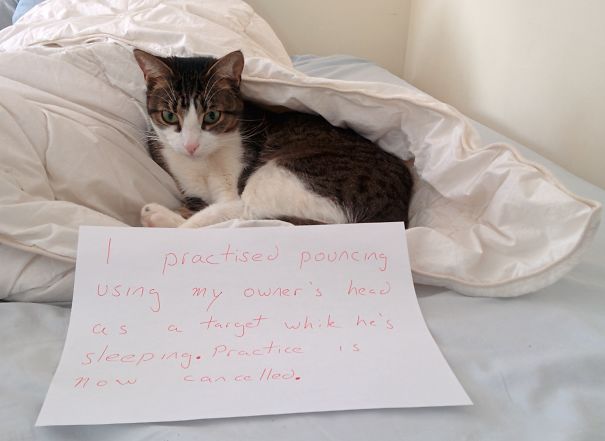 I practised pouncing
using my owner's head
as a target while he's
sleeping. Practice is
now cancelled.